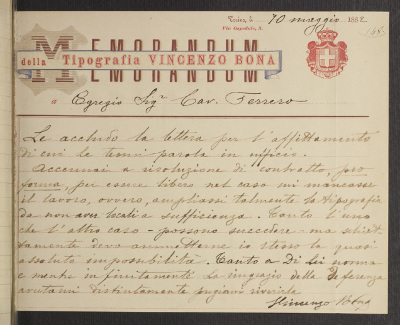 Torino, li 10 maggio 1882
Via Ospedale, 3.
MEMORANDUM
della Tipografia VINCENZO BONA
MEMORANDUM
a Egregio Sigr Cav. Ferrero
Le acchiudo la lettera per l'affittamento
di cui le tenni parola in ufficio.
Accennai a risoluzione di contratto, pro
forma, per essere libero nel caso mi mancasse
il lavoro, ovvero, ampliassi talmente la tipografia
da non aver locali a sufficienza. Tanto l'uno
che l'altro caso possono succedere ma schiet-
tamente devo ammetterne io stesso la quasi
assoluta impossibilità. Tanto a Di Lei norma
e mentre infinitamente La ringrazio della deferenza
distintamente
Vincenzo Bona